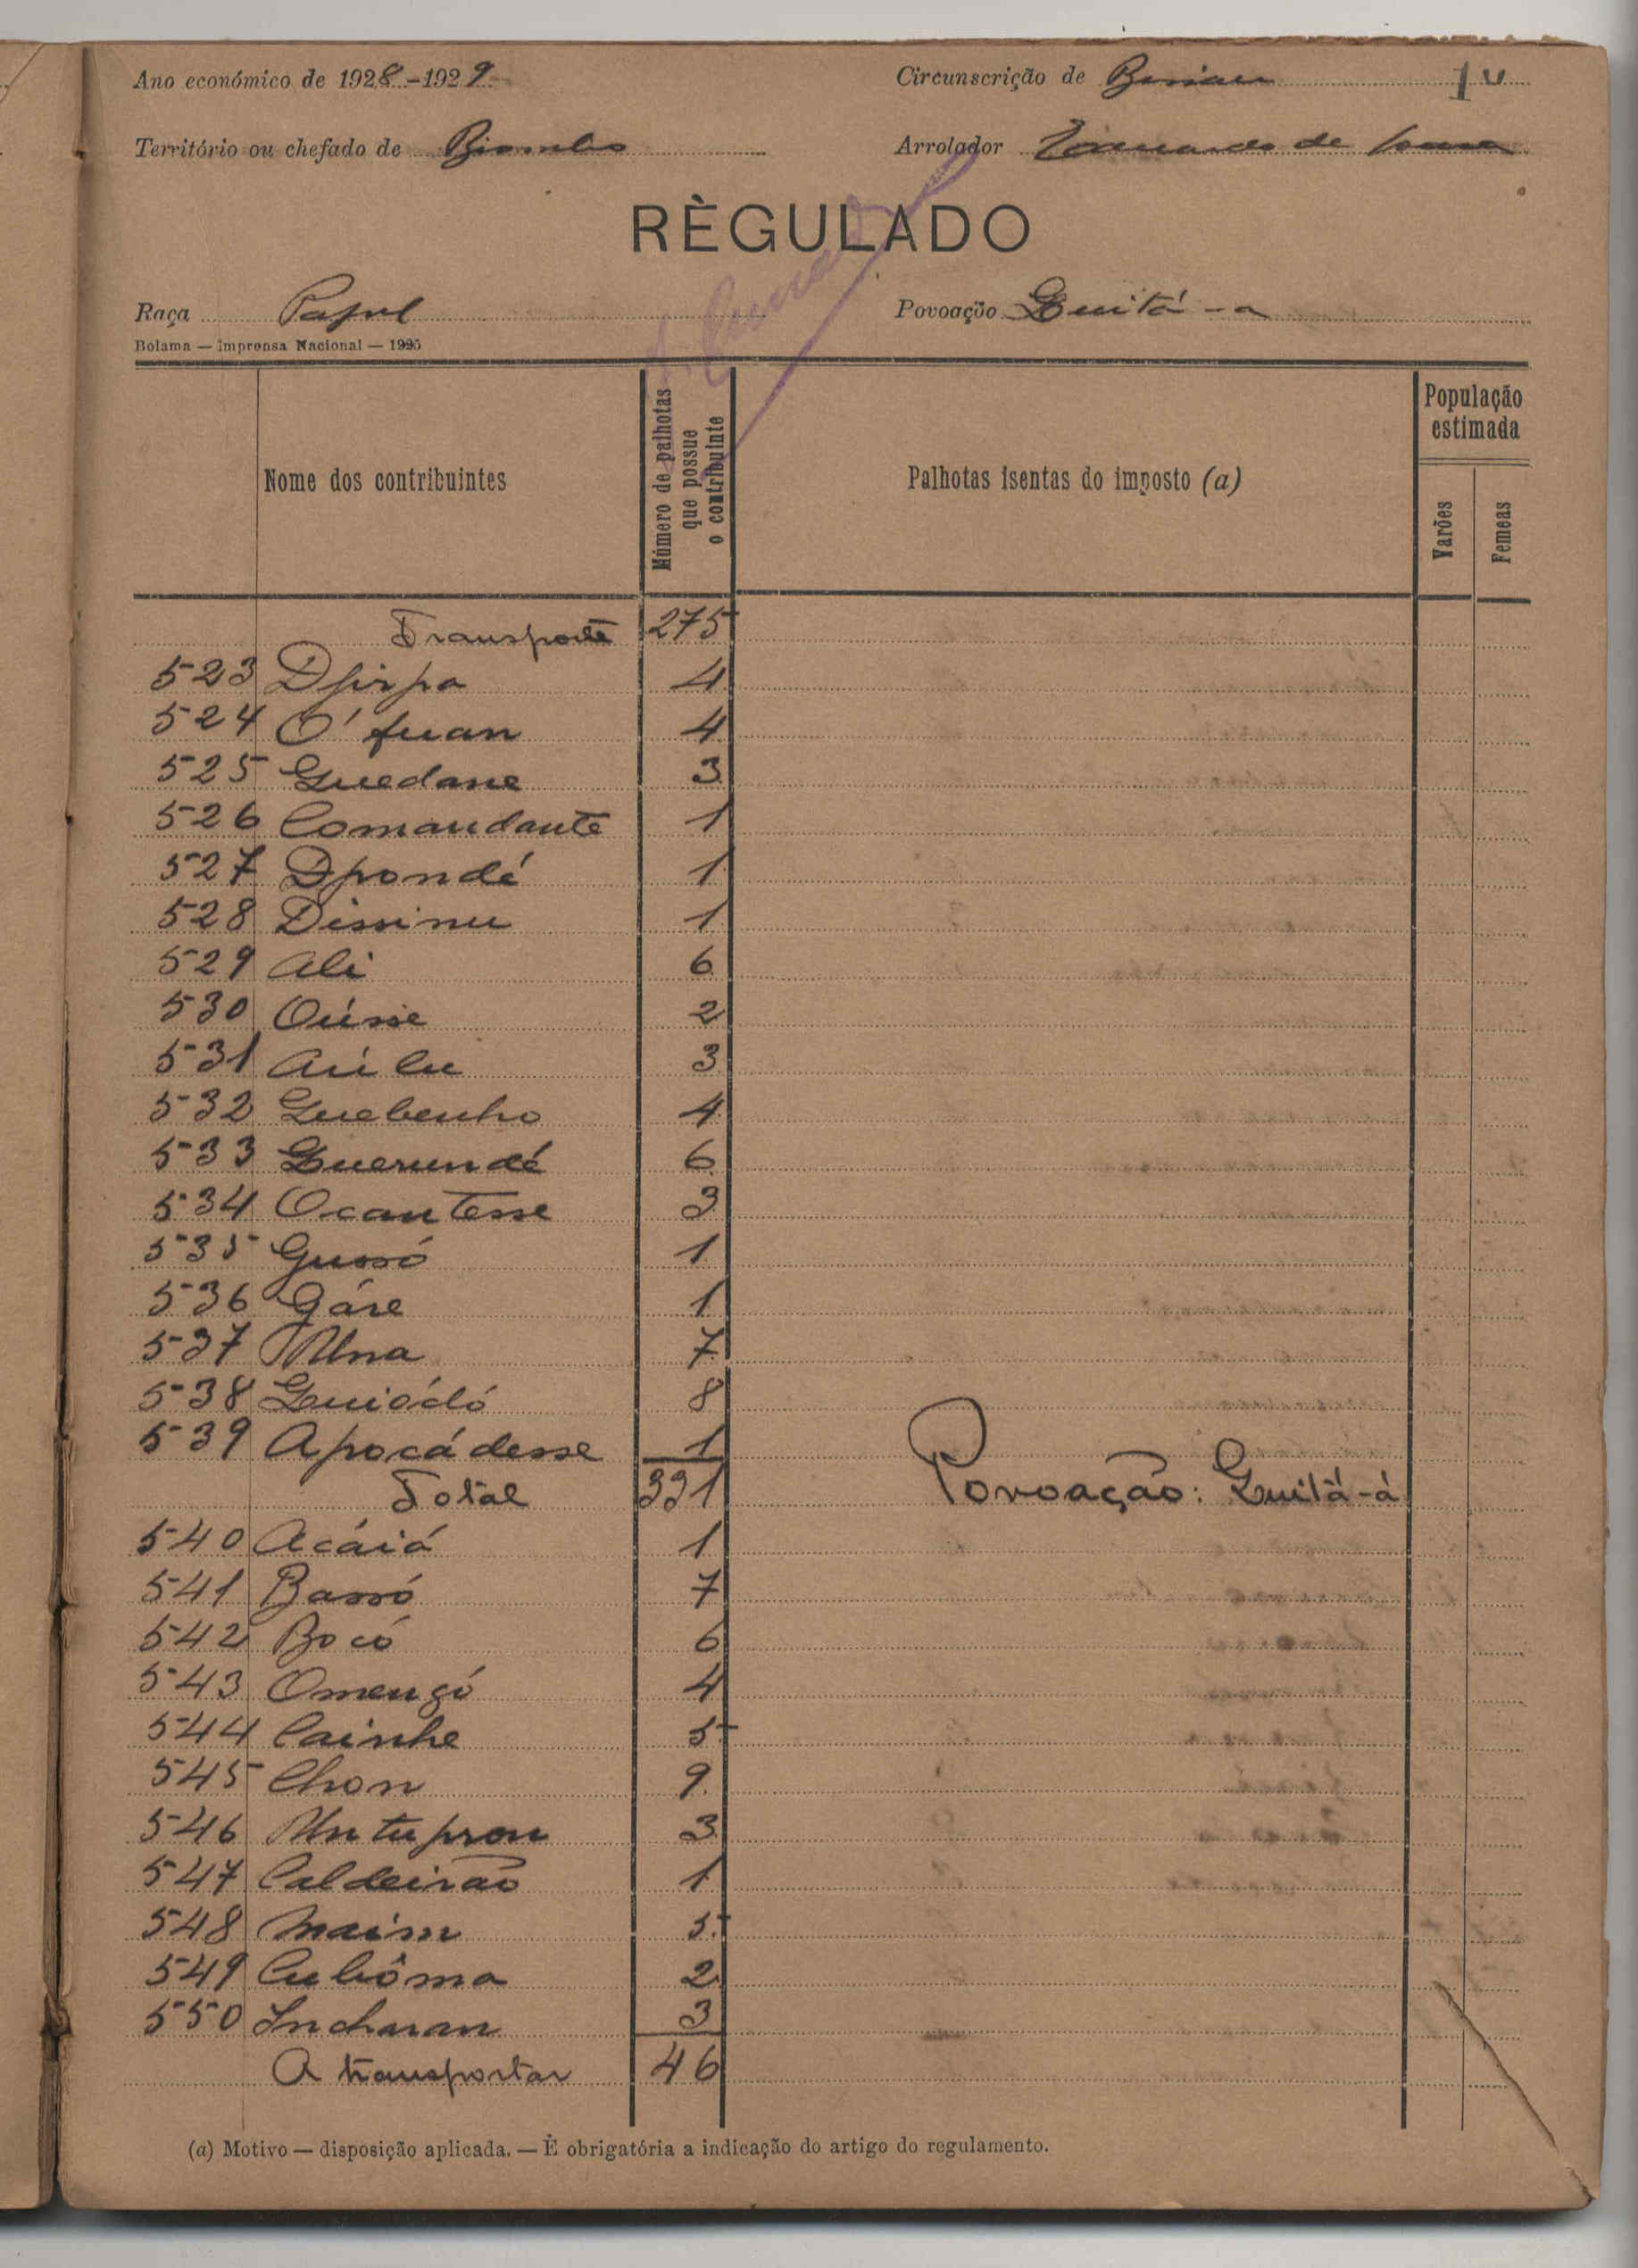 Ano económico de 1928-1929
Circunscrição de Bissau
Território ou chefado de Biombo
Arrolador Fernando de Sousa
RÈGULADO
Raça Papel
Povoação Guitá-a
Bolama — Imprensa Nacional — 1925
Nome dos contribuintes
Número de palhotas que possue o contribuinte
Palhotas isentas do imposto (a)
População estimada
Varões
Femeas
Transporte 275
523 Djirpa 4
524 O'fuan 4
525 Guedane 3
526 Comandante 1
527 Dpondé 1
528 Dissinu 1
529 Ali 6
530 Oússe 2
531 Aúlu 3
532 Guebenho 4
533 Guerundé 6
534 Ocantesse 3
535 Gussó 1
536 Gáre 1
537 Una 7
538 Guiódó 8
539 Apocádesse 1
Total 331 Povoação: Guitá-á
540 Acáiá 1
541 Bassó 7
542 Bocó 6
543 Omengó 4
544 Cainhe 5
545 Chon 9
546 Untupron 3
547 Caldeirão 1
548 Maim 5
549 Cubôma 2
550 Incharan 3
A transportar 46
(a) Motivo — disposição aplicada. — È obrigatória a indicação do artigo do regulamento.